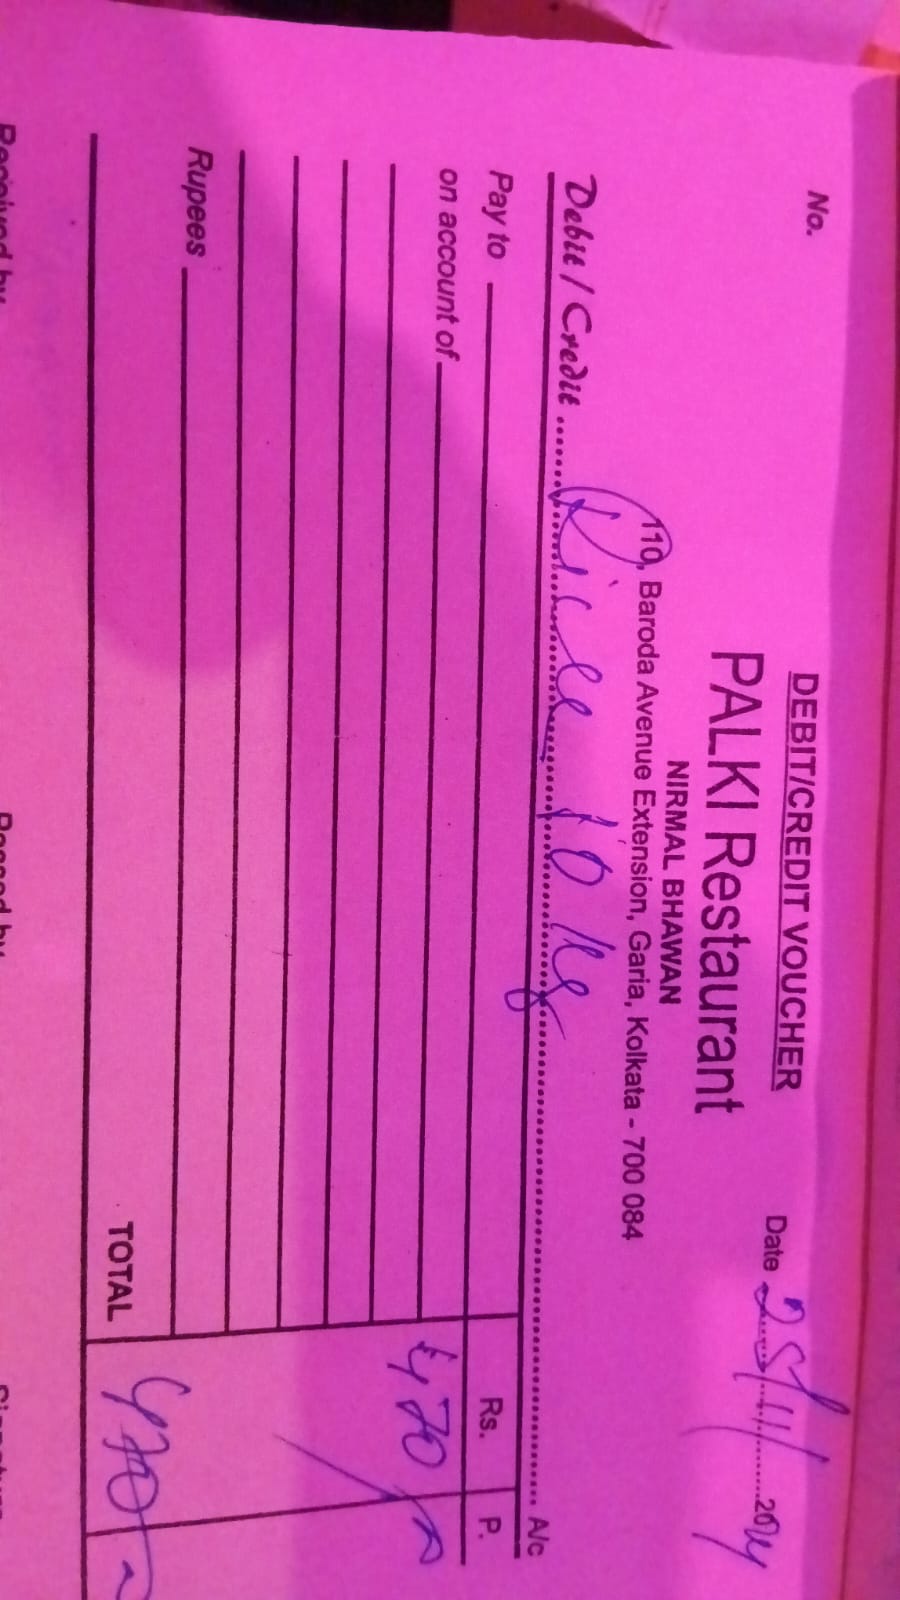 DEBIT/CREDIT VOUCHER
No.
PALKI Restaurant
Date 25/11/2024
NIRMAL BHAWAN
110, Baroda Avenue Extension, Garia, Kolkata - 700 084
Debit / Credit ........ 10 Kg ........ A/c
Pay to
Rs. P.
on account of
470
Rupees
TOTAL 470
Received by
Passed by
Signature